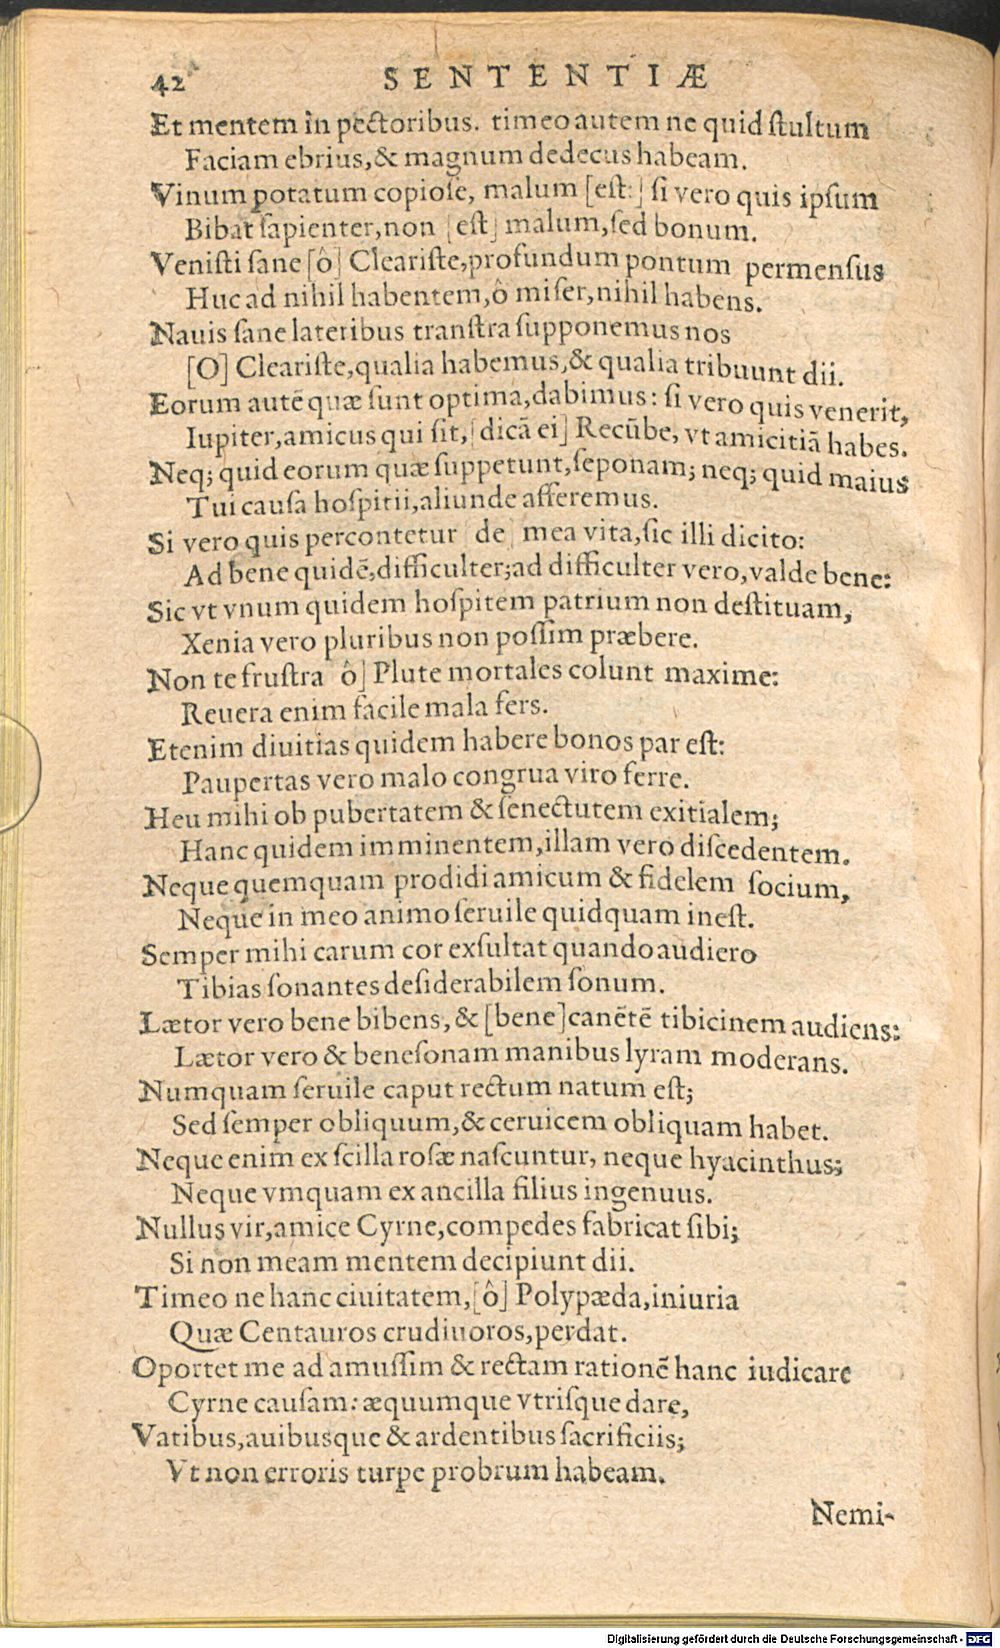 42 SENTENTIÆ
Et mentem in pectoribus. timeo autem ne quid ſtultum
Faciam ebrius, & magnum dedecus habeam.
Vinum potatum copioſe, malum [eſt:] ſi vero quis ipſum
Bibat ſapienter, non [eſt] malum, ſed bonum.
Veniſti ſane [ô] Cleariſte, profundum pontum permenſus
Huc ad nihil habentem, ô miſer, nihil habens.
Nauis ſane lateribus tranſtra ſupponemus nos
[O] Cleariſte, qualia habemus, & qualia tribuunt dii.
Eorum autē quæ ſunt optima, dabimus: ſi vero quis venerit,
Iupiter, amicus qui ſit, [dicā ei] Recūbe, vt amicitiā habes.
Neq; quid eorum quæ ſuppetunt, ſeponam; neq; quid maius
Tui cauſa hoſpitii, aliunde afferemus.
Si vero quis percontetur [de] mea vita, ſic illi dicito:
Ad bene quidē, difficulter; ad difficulter vero, valde bene:
Sic vt vnum quidem hoſpitem patrium non deſtituam,
Xenia vero pluribus non poſſim præbere.
Non te fruſtra ô] Plute mortales colunt maxime:
Reuera enim facile mala fers.
Etenim diuitias quidem habere bonos par eſt:
Paupertas vero malo congrua viro ferre.
Heu mihi ob pubertatem & ſenectutem exitialem;
Hanc quidem imminentem, illam vero diſcedentem.
Neque quemquam prodidi amicum & fidelem ſocium,
Neque in meo animo ſeruile quidquam ineſt.
Semper mihi carum cor exſultat quando audiero
Tibias ſonantes deſiderabilem ſonum.
Lætor vero bene bibens, & [bene] canētē tibicinem audiens:
Lætor vero & beneſonam manibus lyram moderans.
Numquam ſeruile caput rectum natum eſt;
Sed ſemper obliquum, & ceruicem obliquam habet.
Neque enim ex ſcilla roſæ naſcuntur, neque hyacinthus;
Neque vmquam ex ancilla filius ingenuus.
Nullus vir, amice Cyrne, compedes fabricat ſibi;
Si non meam mentem decipiunt dii.
Timeo ne hanc ciuitatem, [ô] Polypæda, iniuria
Quæ Centauros crudiuoros, perdat.
Oportet me ad amuſſim & rectam rationē hanc iudicare
Cyrne cauſam: æquumque vtriſque dare,
Vatibus, auibusque & ardentibus ſacrificiis;
Vt non erroris turpe probrum habeam.
Nemi-
Digitalisierung gefördert durch die Deutsche Forschungsgemeinschaft - DFG